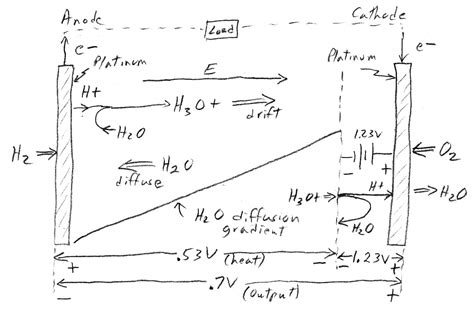 Anode
Cathode
Load
e-
e-
Platinum
Platinum
E
H+
H3O+
drift
H2O
1.23V
H2
O2
H2O
diffuse
- +
H3O+
H+
H2O
H2O
H2O diffusion
gradient
.53V (heat)
1.23V
+ - - +
.7V (output)
- +